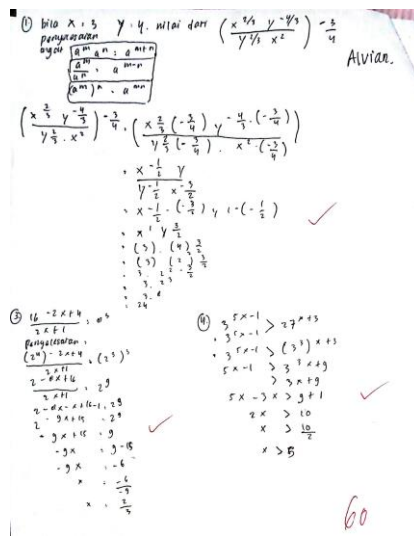 ① bila x = 3 y = 4. nilai dari (x^2/3 y^-4/3 / y^2/3 x^2)^-3/4
penyelesaian
Alvian.
a^m a^n = a^m+n
a^m / a^n = a^m-n
(a^m)^n = a^mn
-3/4 = (x^2/3 (-3/4) y^-4/3 · (-3/4) / y^2/3 (-3/4) · x^2 · (-3/4))
= x^-1/2 y / y^-1/2 x^-3/2
= x^-1/2 - (-3/2) y 1-(-1/2)
= x^1 y^3/2
= (3) · (4)^3/2
= (3) (2^2)^3/2
= 3 · 2^2 · 3/2
= 3 · 2^3
= 3 · 8
= 24
③ 16^-2x+4 / 2^x+1 = 8^3
penyelesaian :
(2^4)^-2x+4 / 2^x+1 = (2^3)^3
2^-8x+16 / 2^x+1 = 2^9
2^-8x-x+16-1 = 2^9
2^-9x+15 = 2^9
-9x+15 = 9
-9x = 9-15
-9x = -6
x = -6/-9
x = 2/3
④ 3^5x-1 > 27^x+3
3^5x-1 > (3^3)^x+3
5x-1 > 3^3x+9
> 3x+9
5x - 3x > 9+1
2x > 10
x > 10/2
x > 5
60